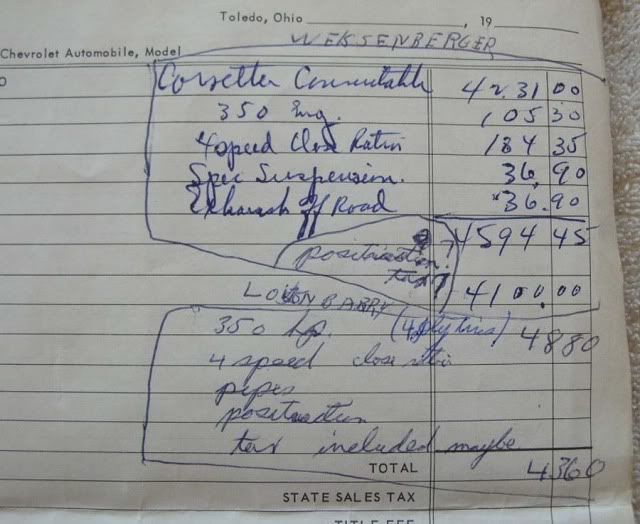 Toledo, Ohio , 19
WEKSENBERGER
Chevrolet Automobile, Model
O
Corvette Convertible 4231 00
350 Eng. 105 30
4 speed Close Ratio 184 35
Spec Suspension. 36.90
Exhaust off Road *36.90
4594 45
positraction ?
tax ?
4100.00
LOTON BARRY
350 hp. (4 ply tires) 4880
4 speed close ratio
pipes
positraction
tax included maybe
TOTAL 4360
STATE SALES TAX
TITLE FEE